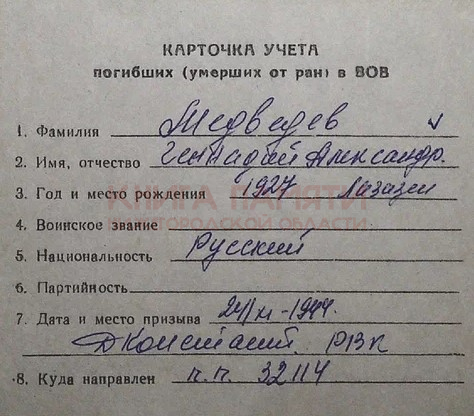 КАРТОЧКА УЧЕТА
погибших (умерших от ран) в ВОВ
1. Фамилия Медведев
2. Имя, отчество Геннадий Александр.
3. Год и место рождения 1927
КНИГА ПАМЯТИ
НИЖЕГОРОДСКОЙ ОБЛАСТИ
4. Воинское звание
5. Национальность Русский
6. Партийность
7. Дата и место призыва
РВК
8. Куда направлен п.п. 32114